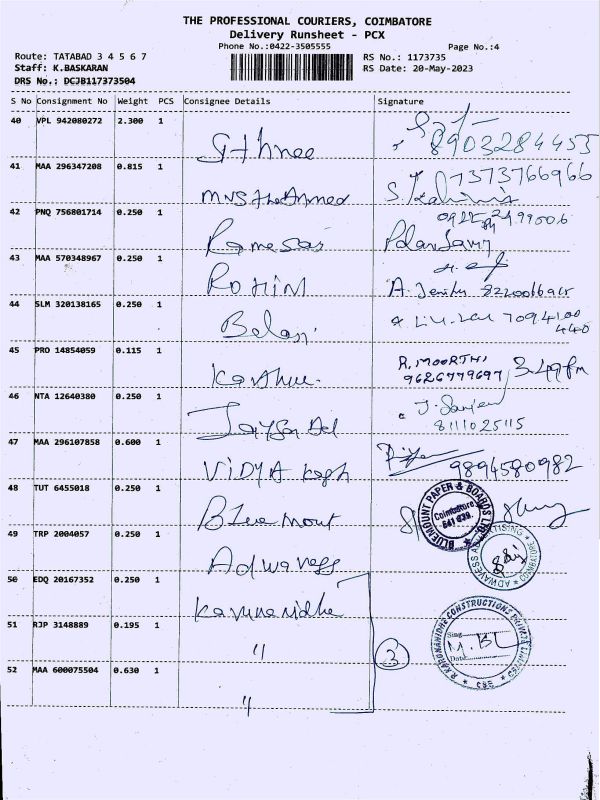 THE PROFESSIONAL COURIERS, COIMBATORE
Delivery Runsheet - PCX
Phone No.:0422-3505555
Page No.:4
Route: TATABAD 3 4 5 6 7
RS No.: 1173735
Staff: K.BASKARAN
RS Date: 20-May-2023
DRS No.: DCJB117373504
S No Consignment No Weight PCS Consignee Details Signature
40 VPL 942080272 2.300 1 8903284455
41 MAA 296347208 0.815 1 7373766966
42 PNQ 756801714 0.250 1
43 MAA 570348967 0.250 1 ROHINI
44 SLM 320138165 0.250 1 Balaji
45 PRO 14854059 0.115 1 R. MOORTHI
9626779697 3.49pm
46 NTA 12640380 0.250 1 J. Sanjeev
8111025115
47 MAA 296107858 0.600 1 VIDYA 9894580982
48 TUT 6455018 0.250 1 Bluemount BLUEMOUNT PAPER & BOARDS Coimbatore
49 TRP 2004057 0.250 1 Adwavess ADWAVESS ADVERTISING * COIMBATORE
50 EDQ 20167352 0.250 1 Karunanidhe
51 RJP 3148889 0.195 1 " 3 CONSTRUCTIONS PRIVATE LIMITED
Date
52 MAA 600075504 0.630 1 "